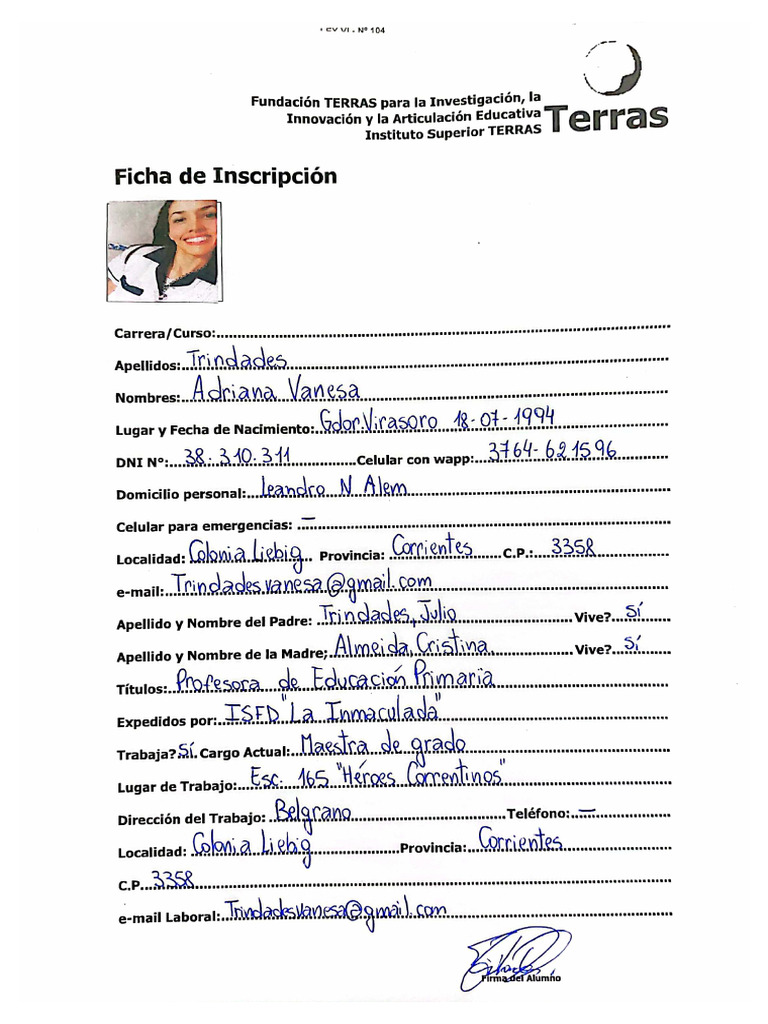 Nº 104
Fundación TERRAS para la Investigación, la
Innovación y la Articulación Educativa
Instituto Superior TERRAS
Terras
Ficha de Inscripción
Carrera/Curso:
Apellidos: Trindades
Nombres: Adriana Vanesa
Lugar y Fecha de Nacimiento: Gdor. Virasoro 18-07-1994
DNI Nº: 38.310.311 Celular con wapp: 3764-621596
Domicilio personal: Leandro N Alem
Celular para emergencias: —
Localidad: Colonia Liebig Provincia: Corrientes C.P.: 3358
e-mail: Trindadesvanesa@gmail.com
Apellido y Nombre del Padre: Trindades, Julio Vive? Sí
Apellido y Nombre de la Madre: Almeida, Cristina Vive? Sí
Títulos: Profesora de Educación Primaria
Expedidos por: ISFD "La Inmaculada"
Trabaja? Sí. Cargo Actual: Maestra de grado
Lugar de Trabajo: Esc. 165 "Héroes Correntinos"
Dirección del Trabajo: Belgrano Teléfono: —
Localidad: Colonia Liebig Provincia: Corrientes
C.P. 3358
e-mail Laboral: Trindadesvanesa@gmail.com
Firma del Alumno